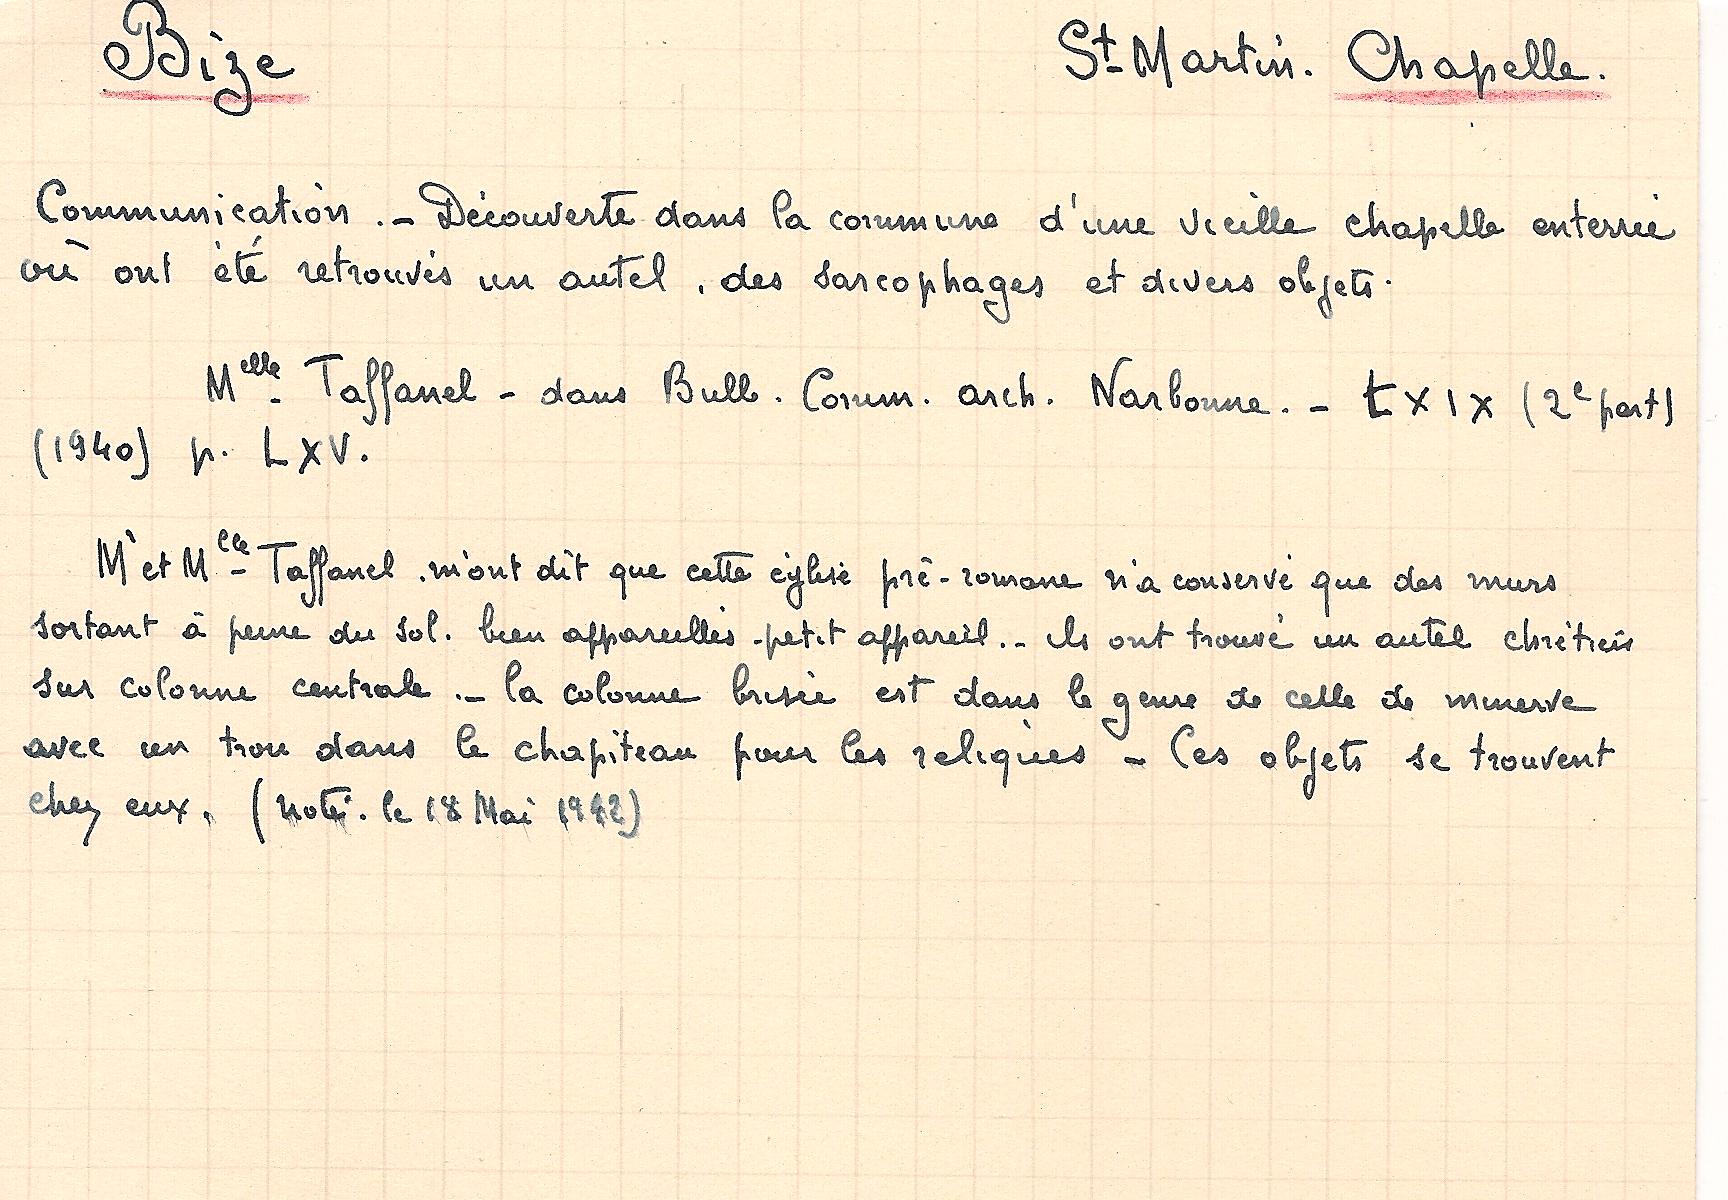 Bize St Martin. Chapelle.
Communication. - Découverte dans la commune d'une vieille chapelle enterrée
où ont été retrouvés un autel, des sarcophages et divers objets.
Melle. Taffanel - dans Bull. Comm. arch. Narbonne. - t XIX (2e part)
(1940) p. LXV.
Mr et Melle Taffanel m'ont dit que cette église pré-romane n'a conservé que des murs
sortant à peine du sol. bien appareillés - petit appareil. - Ils ont trouvé un autel chrétien
sur colonne centrale. - la colonne brisée est dans le genre de celle de minerve
avec un trou dans le chapiteau pour les reliques - Ces objets se trouvent
chez eux. (noté. le 18 Mai 1942)